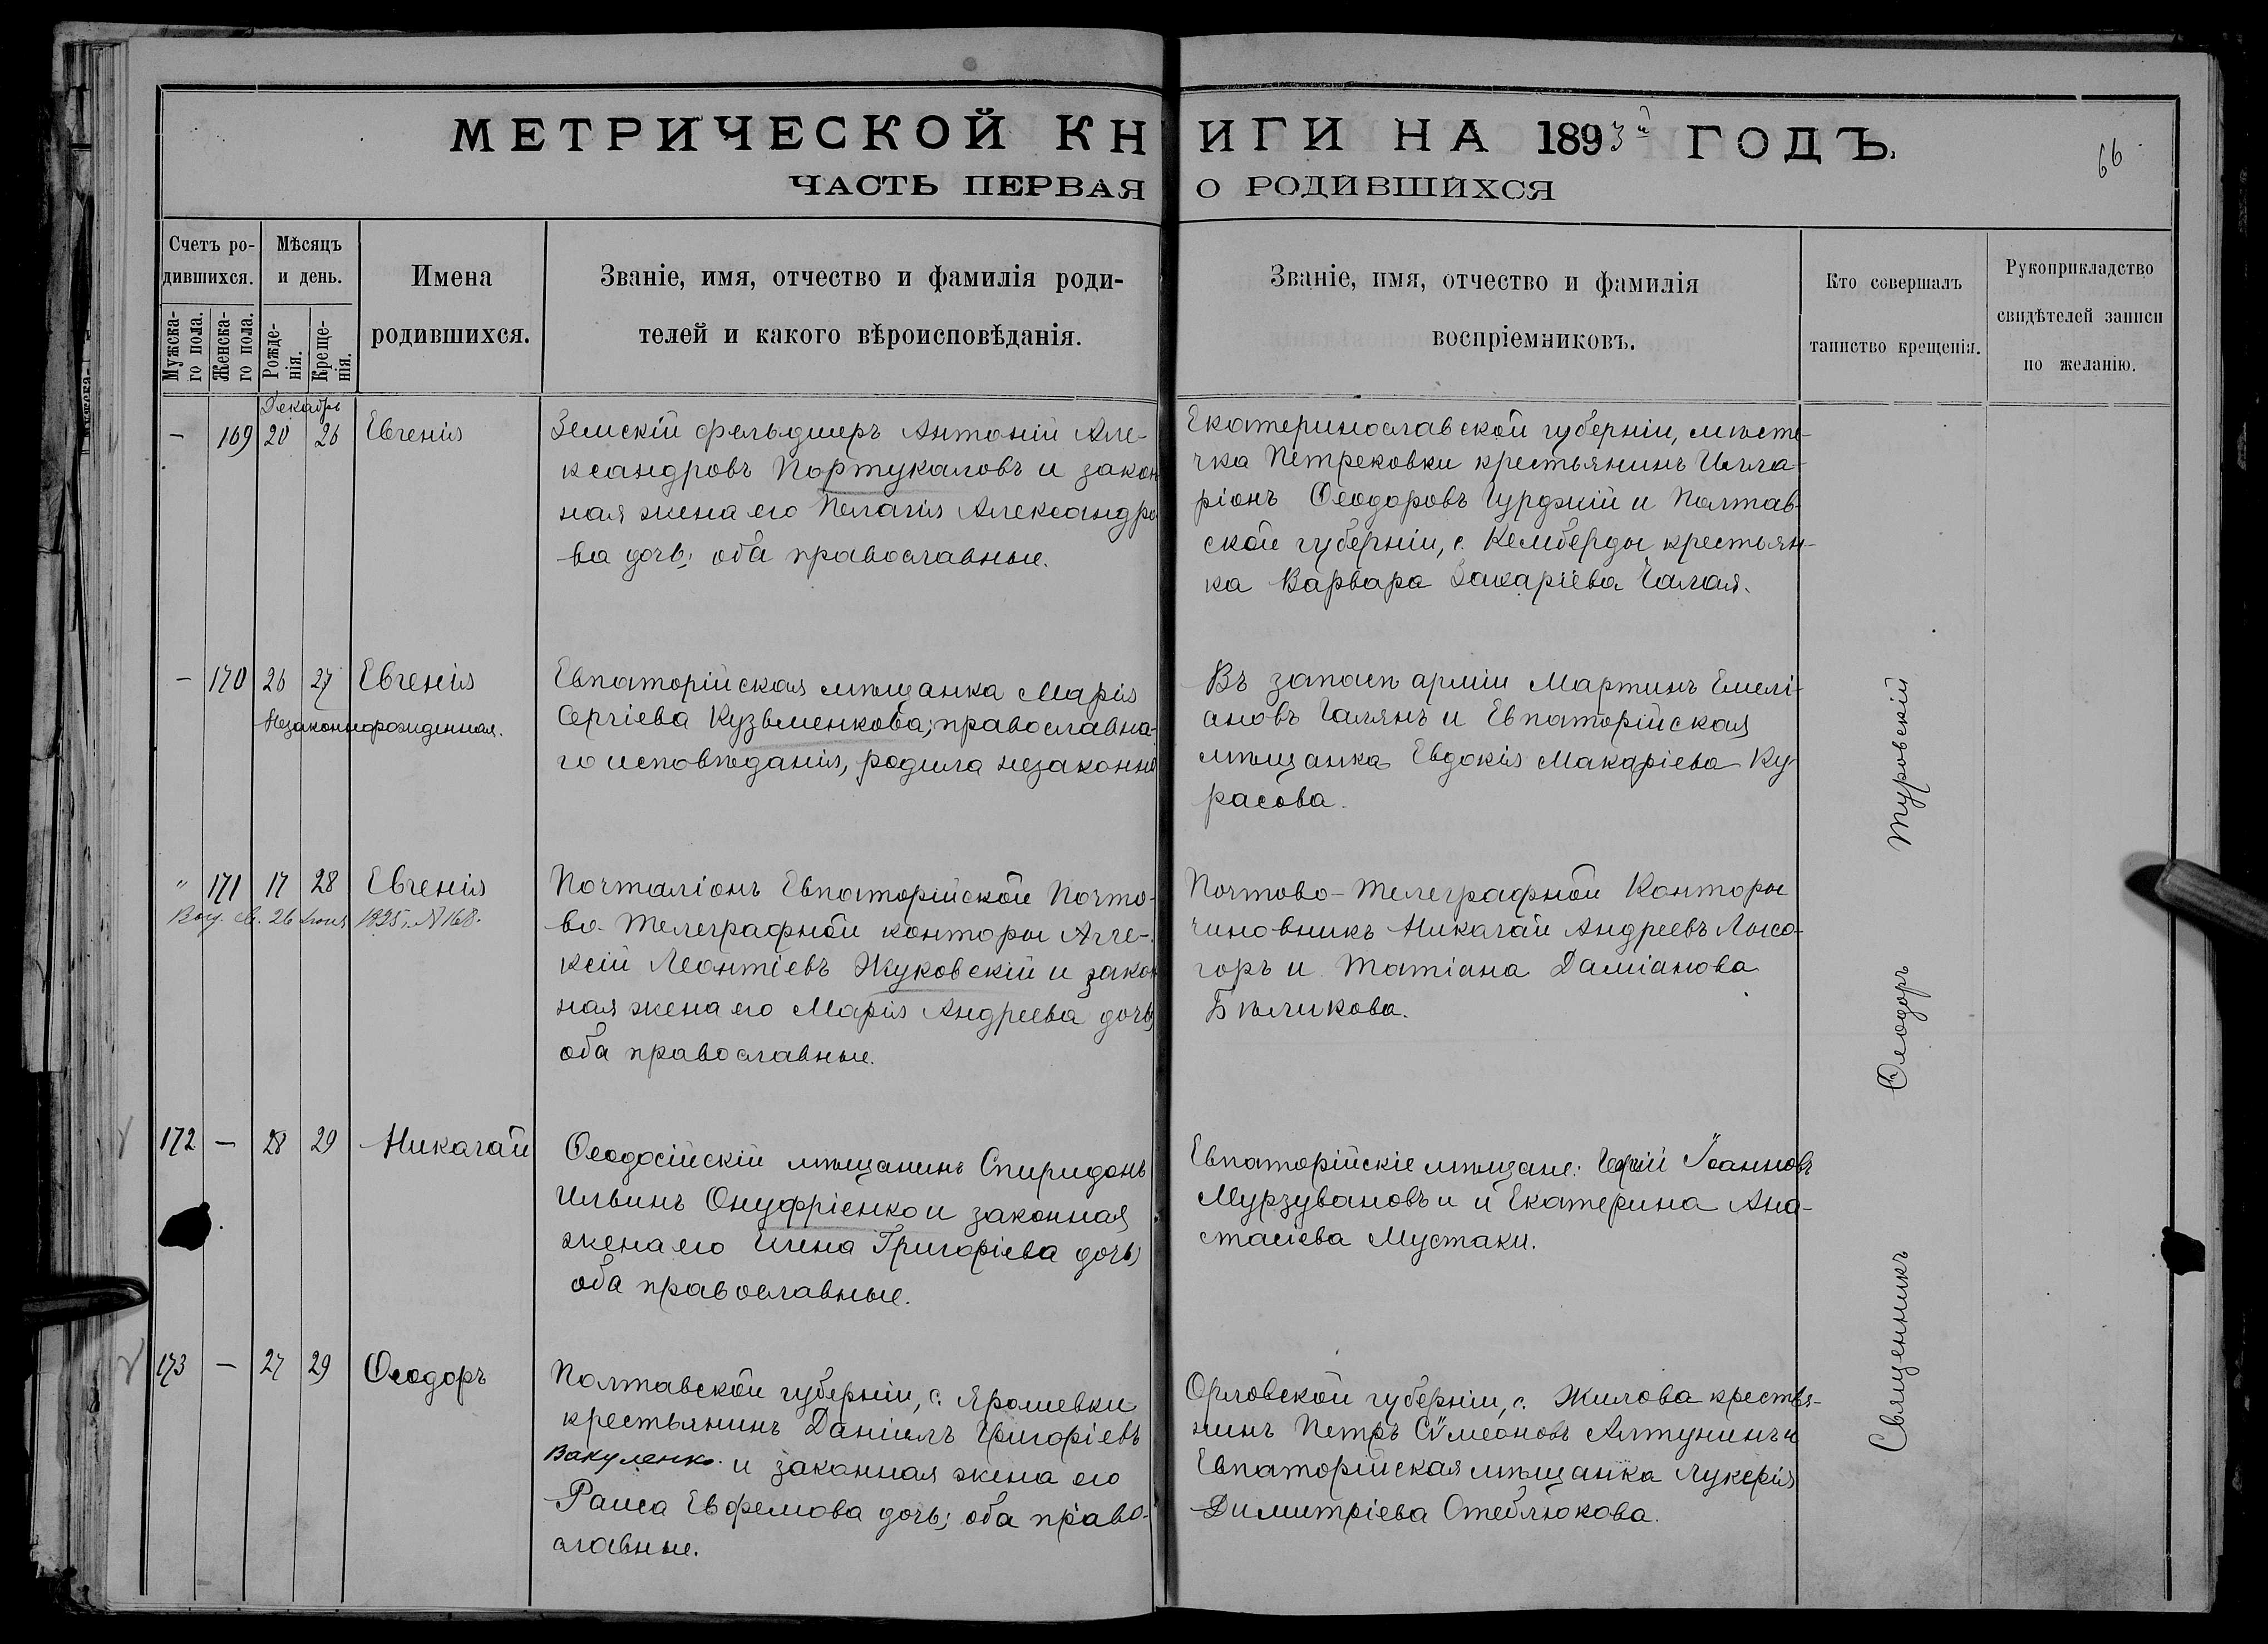 МЕТРИЧЕСКОЙ КНИГИ НА 1893й ГОДЪ.
66
ЧАСТЬ ПЕРВАЯ О РОДИВШИХСЯ
Счетъ ро-
дившихся.
Мужска-
го пола.
Женска-
го пола.
Мѣсяцъ
и день.
Рожде-
нія.
Креще-
нія.
Имена
родившихся.
Званіе, имя, отчество и фамилія роди-
телей и какого вѣроисповѣданія.
Званіе, имя, отчество и фамилія
воспріемниковъ.
Кто совершалъ
таинство крещенія.
Рукоприкладство
свидѣтелей записи
по желанію.
Декабрь
— 169 20 26 Евгенія
Земскій фельдшеръ Антоній Але-
ксандровъ Портукаловъ и закон
ная жена его Пелагія Александро
ва дочь; оба православные.
Екатеринославской губерніи, мѣсте-
чка Петрековки крестьянинъ Илла-
ріонъ Ѳеодоровъ Гурджій и Полтав-
ской губерніи, с. Келмберды крестьян-
ка Варвара Захаріева Галая.
— 170 26 27 Евгенія
Незаконнорожденная.
Евпаторійская мѣщанка Марія
Сергіева Кузьменкова; православна-
го исповѣданія, родила незаконно
Въ запасѣ арміи Мартинъ Емелі-
ановъ Галянъ и Евпаторійская
мѣщанка Евдокія Макаріева Ку-
расова.
" 171 17 28 Евгенія
св. 26 1925. №168.
Почталіонъ Евпаторійской Почто-
во-Телеграфной конторы Але-
ксій Леонтіевъ Жуковскій и закон
ная жена его Марія Андреева дочь;
оба православные.
Почтово-Телеграфной Конторы
чиновникъ Николай Андреевъ Лысо-
горъ и Татіана Даміанова
Бѣликова.
172 — 28 29 Николай
Ѳеодосійскій мѣщанинъ Спиридонъ
Ильинъ Онуфріенко и законная
жена его Елена Григоріева дочь;
оба православные.
Евпаторійскіе мѣщане: Іоанновъ
Мурзувановъ и и Екатерина Ана-
стасіева Мустаки.
173 — 27 29 Ѳеодоръ
Полтавской губерніи, с. Ярошевки
крестьянинъ Даніилъ Григоріевъ
Вакуленко и законная жена его
Раиса Евфемова дочь; оба право-
славные.
Орловской губерніи, с. Жилова крестья-
нинъ Петръ Сѵмеоновъ Алтунинъ и
Евпаторійская мѣщанка Лукерія
Димитріева Стеблюкова.
Священникъ Ѳеодоръ Туровскій